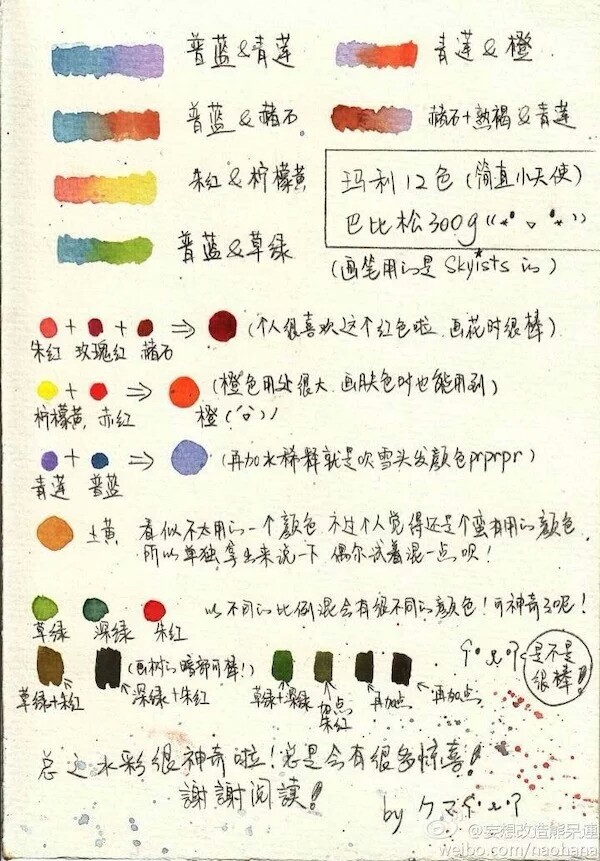 普蓝&青莲
青莲&橙
普蓝&赭石
赭石+熟褐&青莲
朱红&柠檬黄
玛利12色(简直小天使)
巴比松300g
普蓝&草绿
(画笔用的是Skyists的)
+ + ⇒ (个人很喜欢这个红色啦 画花时很棒)
朱红 玫瑰红 赭石
+ ⇒ (橙色用处很大 画肤色时也能用到)
柠檬黄 赤红 橙
+ ⇒ (再加水稀释就是吹雪头发颜色prprpr)
青莲 普蓝
土黄 看似不太用的一个颜色 不过个人觉得还是个蛮有用的颜色
所以单独拿出来说一下 偶尔试着混一点呗!
以不同的比例混会有很不同的颜色!可神奇了呢!
草绿 深绿 朱红
(画树的暗部可棒!)
是不是
很棒!!
草绿+朱红
深绿+朱红
草绿+深绿
加点
朱红
再加点
再加点
总之水彩很神奇啦!总是会有很多惊喜!
謝謝阅读!
by クマ
@妄想改造熊呆連
weibo.com/naohana